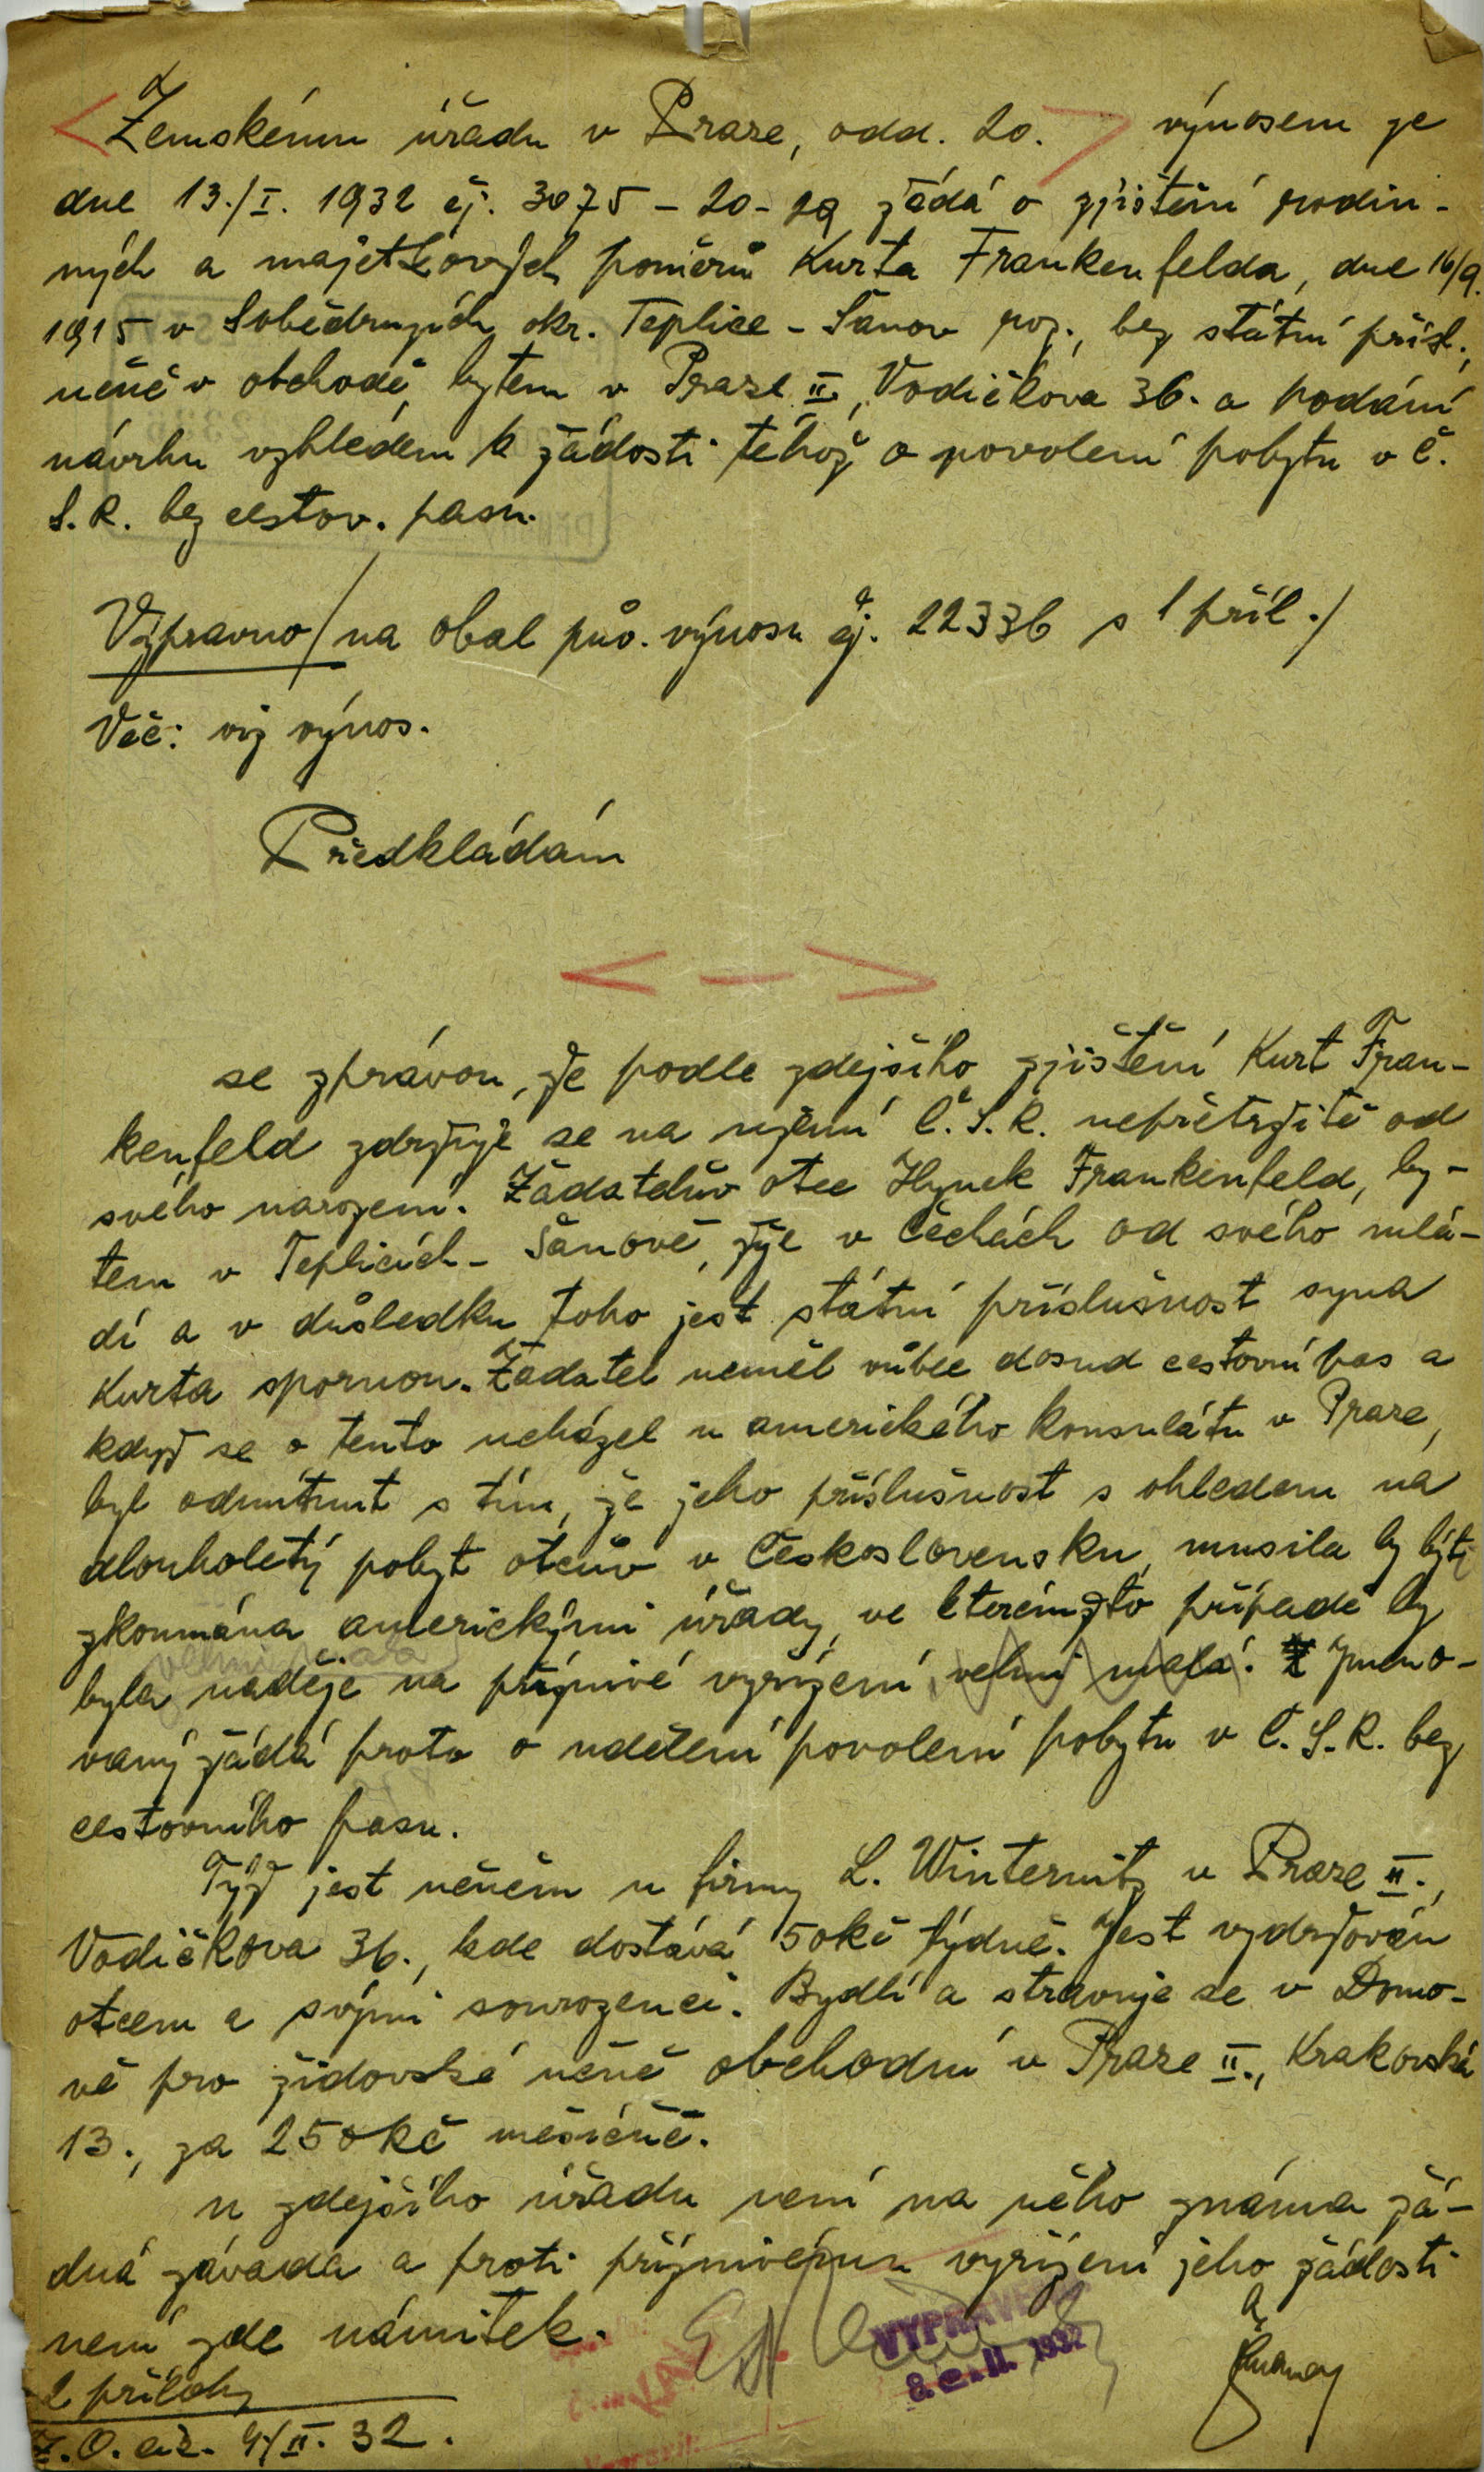 Zemskému úřadu v Praze, odd. 20. výnosem ze
dne 13./I. 1932 čj. 3075 - 20 - 29 žádá o zjištění rodin-
ných a majetkových poměrů Kurta Frankenfelda, dne 16/9.
1915 v Sobědruzích, okr. Teplice - Šanov roz., bez státní přísl.,
učně v obchodě, bytem v Praze II., Vodičkova 36. a podání
návrhu vzhledem k žádosti téhož o povolení pobytu v Č.
S. R. bez cestov. pasu.
Výpravno /na obal pův. výnosu čj. 22336 s 1 příl./
Věc: viz výnos.
Předkládám
< — >
se zprávou, že podle zdejšího zjištění Kurt Fran-
kenfeld zdržuje se na území Č. S. R. nepřetržitě od
svého narození. Žadatelův otec Hynek Frankenfeld, by-
tem v Teplicích - Šanově, žije v Čechách od svého mlá-
dí a v důsledku toho jest státní příslušnost syna
Kurta spornou. Žadatel neměl vůbec dosud cestovní pas a
když se o tento ucházel u amerického konsulátu v Praze,
byl odmítnut s tím, že jeho příslušnost s ohledem na
dlouholetý pobyt otcův v Československu, musila by býti
zkoumána americkými úřady, ve kterémžto případě by
velmi malá
byla naděje na příznivé vyřízení, velmi malá. Jmeno-
vaný žádá proto o udělení povolení pobytu v Č. S. R. bez
cestovního pasu.
Týž jest učněm u firmy L. Winternitz v Praze II.,
Vodičkova 36., kde dostává 50 Kč týdně. Jest vydržován
otcem a svými sourozenci. Bydlí a stravuje se v Domo-
vě pro židovské učně obchodní v Praze II., Krakovská
13., za 250 Kč měsíčně.
U zdejšího úřadu není na něho známa žá-
dná závada a proti příznivému vyřízení jeho žádosti
není zde námitek.
VYPRAVENO
8. II. 1932
2 přílohy
4/II. 32.